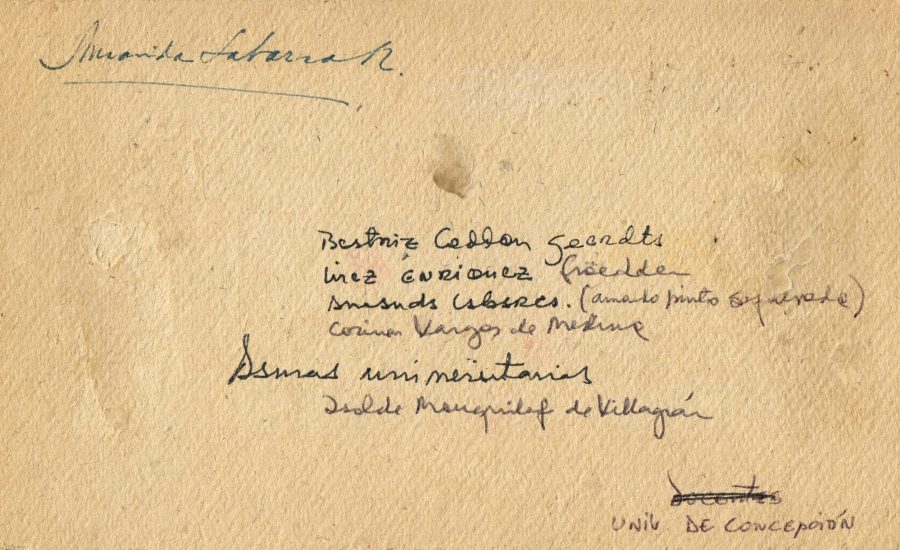 Amanda Labarca H.
Beatriz Ceddon Geerdts
Inez ENRIQUEZ Fröedden
Amanda Labarca. (amado pinto
Corina Vargas de Medina
universitarias
Isolde de Villagrán
docentes
UNIV. DE CONCEPCIÓN